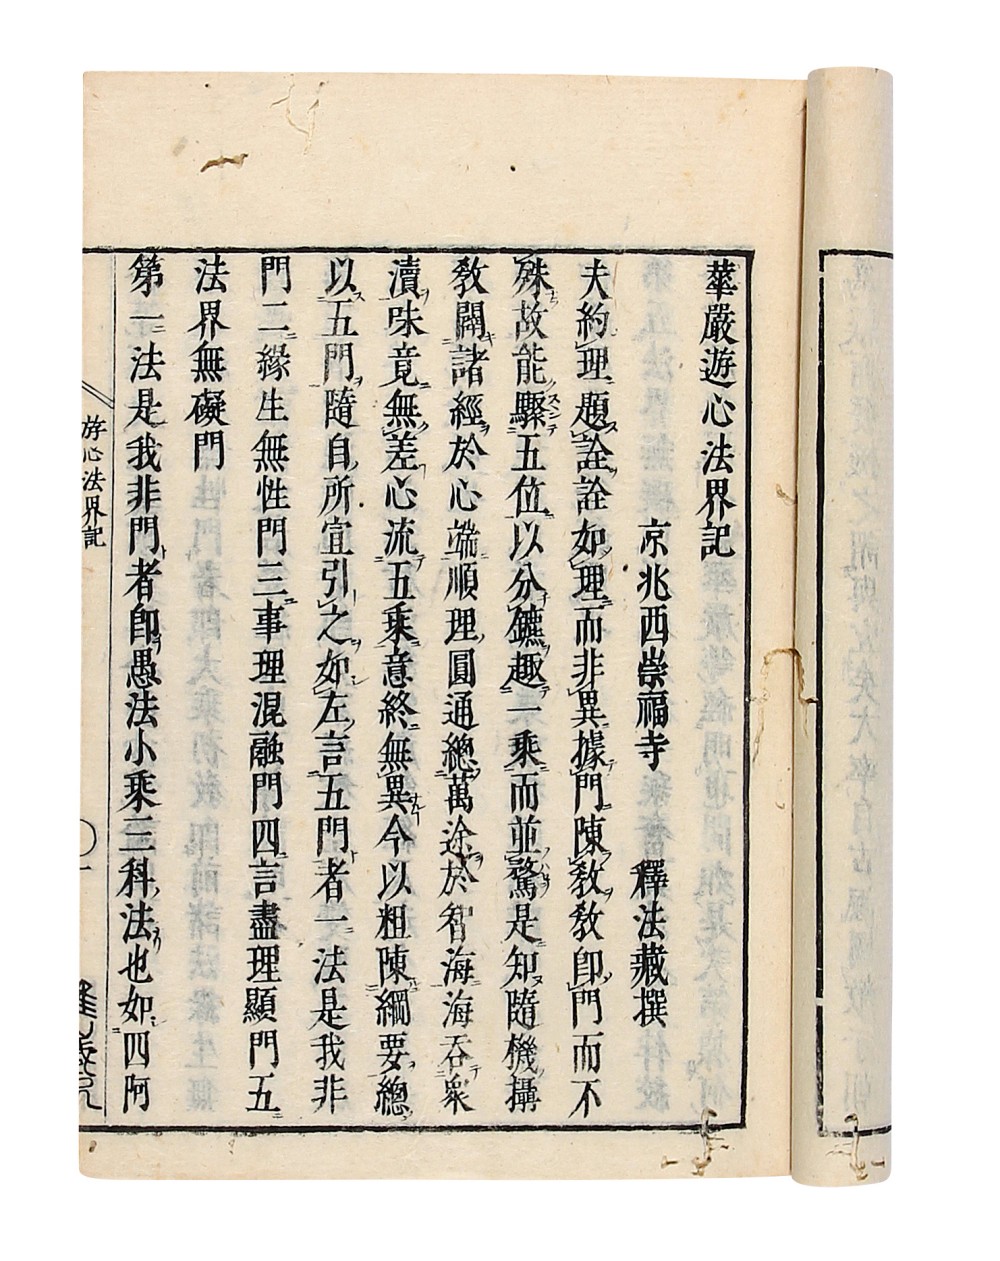 華嚴遊心法界記
京兆西崇福寺 釋法藏撰
夫約理題詮詮如理而非異據門陳敎敎卽門而不
殊故能驟五位以分鑣趣一乘而並騖是知隨機攝
敎闢諸經於心端順理圓通總萬途於智海海吞衆
瀆味竟無差心流五乘意終無異今以粗陳綱要總
以五門隨自所宜引之如左言五門者一法是我非
門二緣生無性門三事理混融門四言盡理顯門五
法界無礙門
第一法是我非門者卽愚法小乘三科法也如四阿
游心法界記
〇一